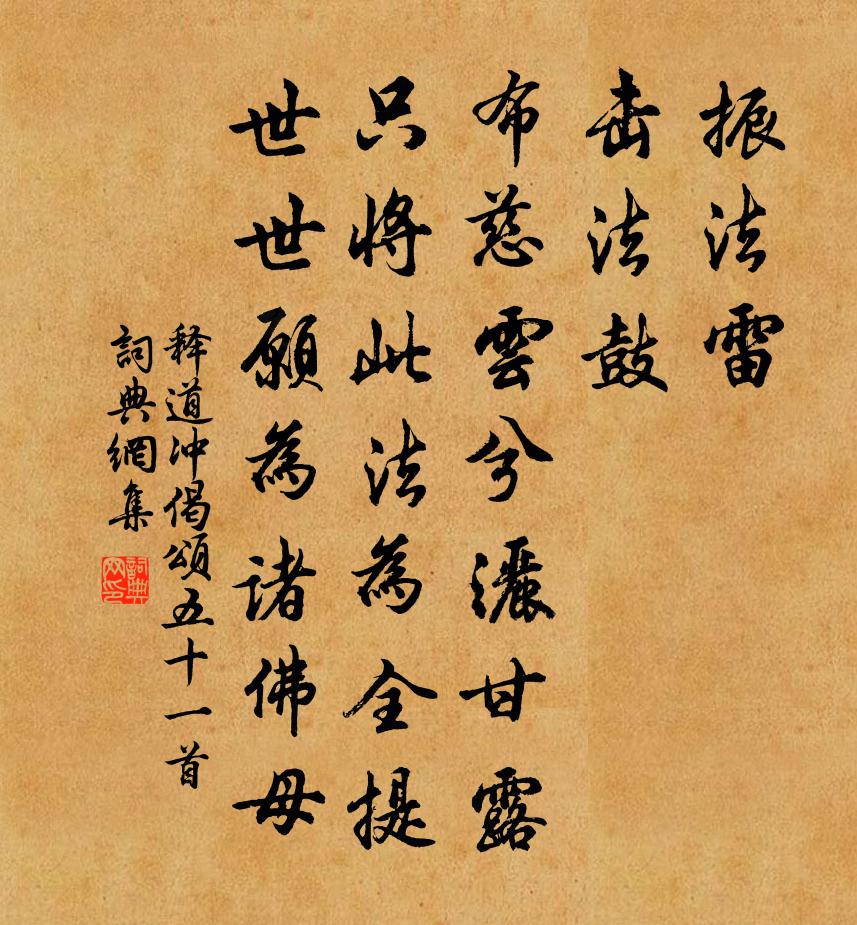 振法雷
击法鼓
布慈雲兮灑甘露
只將此法為全提
世世願為諸佛母
释道冲偈頌五十一首
詞典網集
詞典网印